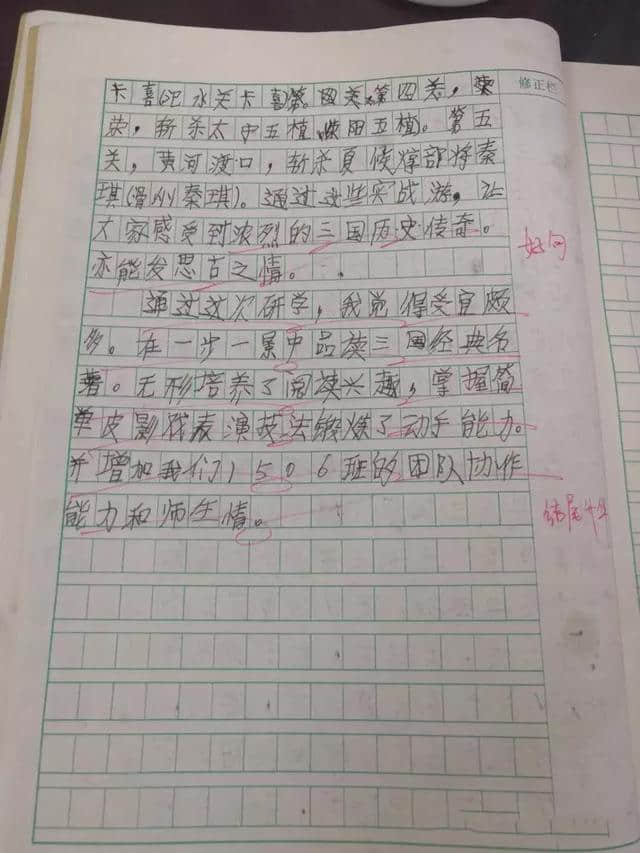 修正栏
卡喜(汜水关卡喜)第四关,第四关,荥
荥,斩杀太中五植。五植。第五
关,黄河渡口,斩杀夏候惇部将秦
琪(滑州秦琪)。通过这些实战游,让
大家感受到浓烈的三国历史传奇。
亦能发思古之情。
好句
通过这次研学,我觉得受宜颇
多。在一步一景中品读三国经典名
著。无形培养了阅读兴趣,掌握简
单皮影戏表演技法锻炼了动手能力。
并增加我们1506班的团队协作
能力和师生情。
结尾